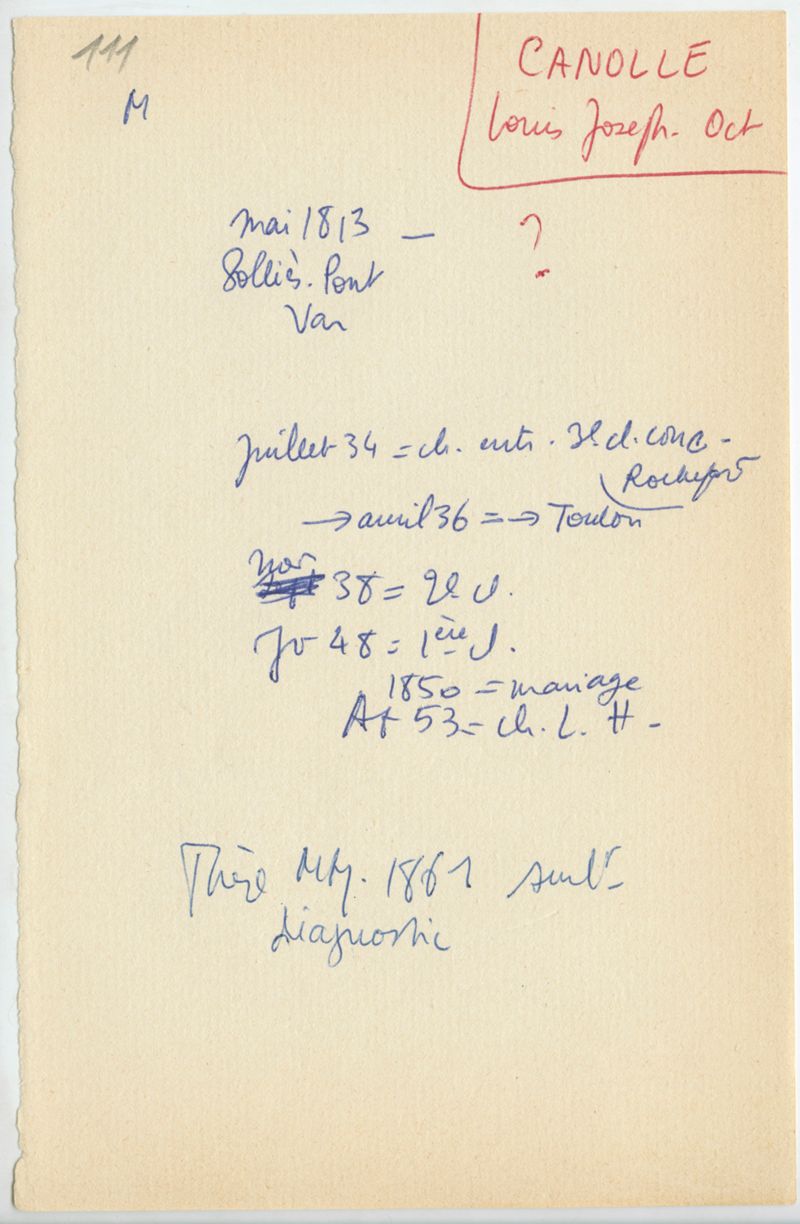 111
M
CANOLLE
Louis Joseph. Oct
mai 1813 — ?
Solliès. Pont
Var
Juillet 34 = ch. entr. 3e cl. conc -
Rochefort
→ avril 36 = → Toulon
nov. 38 = 2e cl.
Jr 48 = 1ère cl.
1850 = mariage
At 53 = ch. L. H -
Thèse Mtp. 1861 sur le
diagnostic